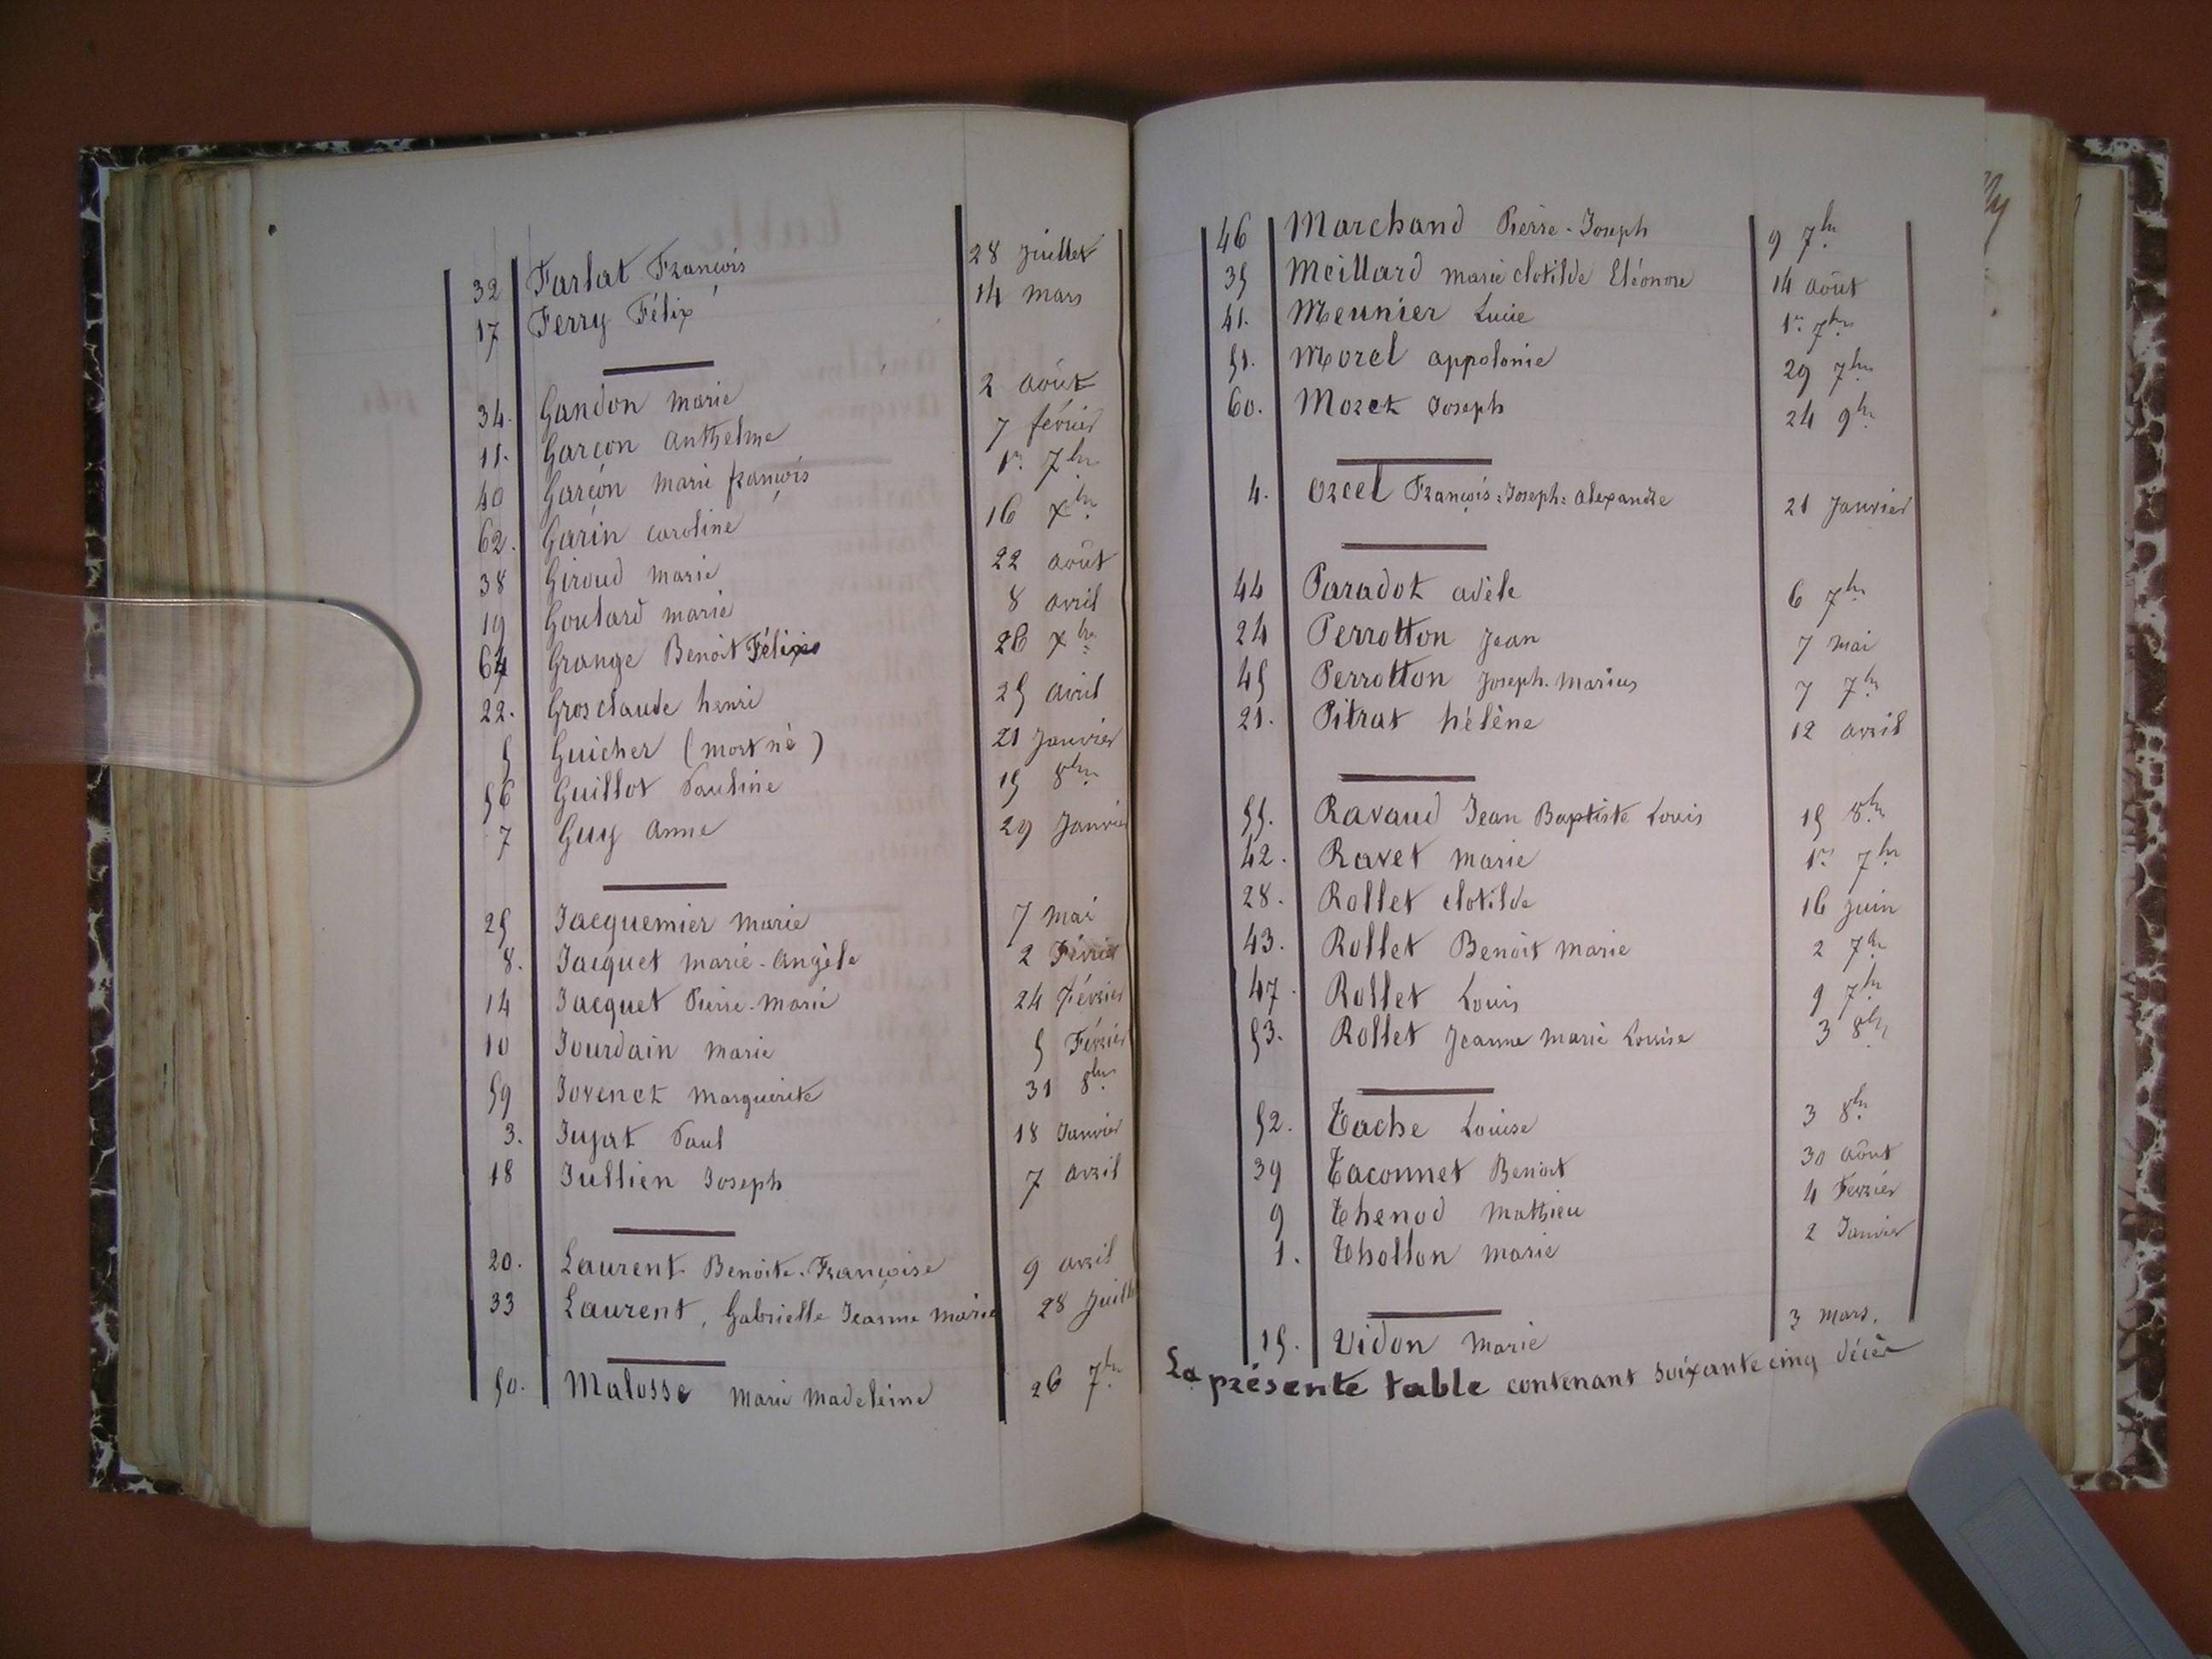 32 Farlat François 28 Juillet
17 Ferry Félix 14 mars
34. Gandon marie 2 août
11. Garcon anthelme 7 février
40 Garçon marie françois 1er 7bre
62. Garin caroline 16 xbre
38 Giroud marie 22 août
19 Goulard marie 8 avril
64 Grange Benoît Félix 26 xbre
22. Grosclaude henri 25 avril
5 Guicher (mort né) 21 Janvier
56 Guillot Pauline 15 8bre
7 Guy anne 29 Janvier
25 Jacquemier marie 7 mai
8. Jacquet marie-angèle 2 Février
14 Jacquet Pierre-marie 24 Février
10 Jourdain marie 5 Février
59 Jovenet marguerite 31 8bre
3. Jujat Paul 18 Janvier
18 Jullien Joseph 7 avril
20. Laurent Benoite-Françoise 9 avril
33 Laurent, Gabrielle Jeanne marie 28 Juill
50. Malosse marie madeleine 26 7bre
46 Marchand Pierre-Joseph 9 7bre
35 Meillard marie clotilde Eléonore 14 août
41. Meunier Lucie 1er 7bre
51. Morel appolonie 29 7bre
60. Moret Joseph 24 9bre
4. Orcel François-Joseph-alexandre 21 Janvier
44 Paradot adèle 6 7bre
24 Perrotton Jean 7 mai
45 Perrotton Joseph-marius 7 7bre
21. Pitrat hélène 12 avril
55. Ravaud Jean Baptiste Louis 15 8bre
42. Ravet marie 1er 7bre
28. Rollet clotilde 16 juin
43. Rollet Benoit marie 2 7bre
47. Rollet Louis 9 7bre
53. Rollet Jeanne marie Louise 3 8bre
52. Tache Louise 3 8bre
39 Taconnet Benoit 30 août
9 Thenod mathieu 4 Février
1. Thollon marie 2 Janvier
15. Vidon marie 3 mars.
La présente table contenant soixante cinq décès